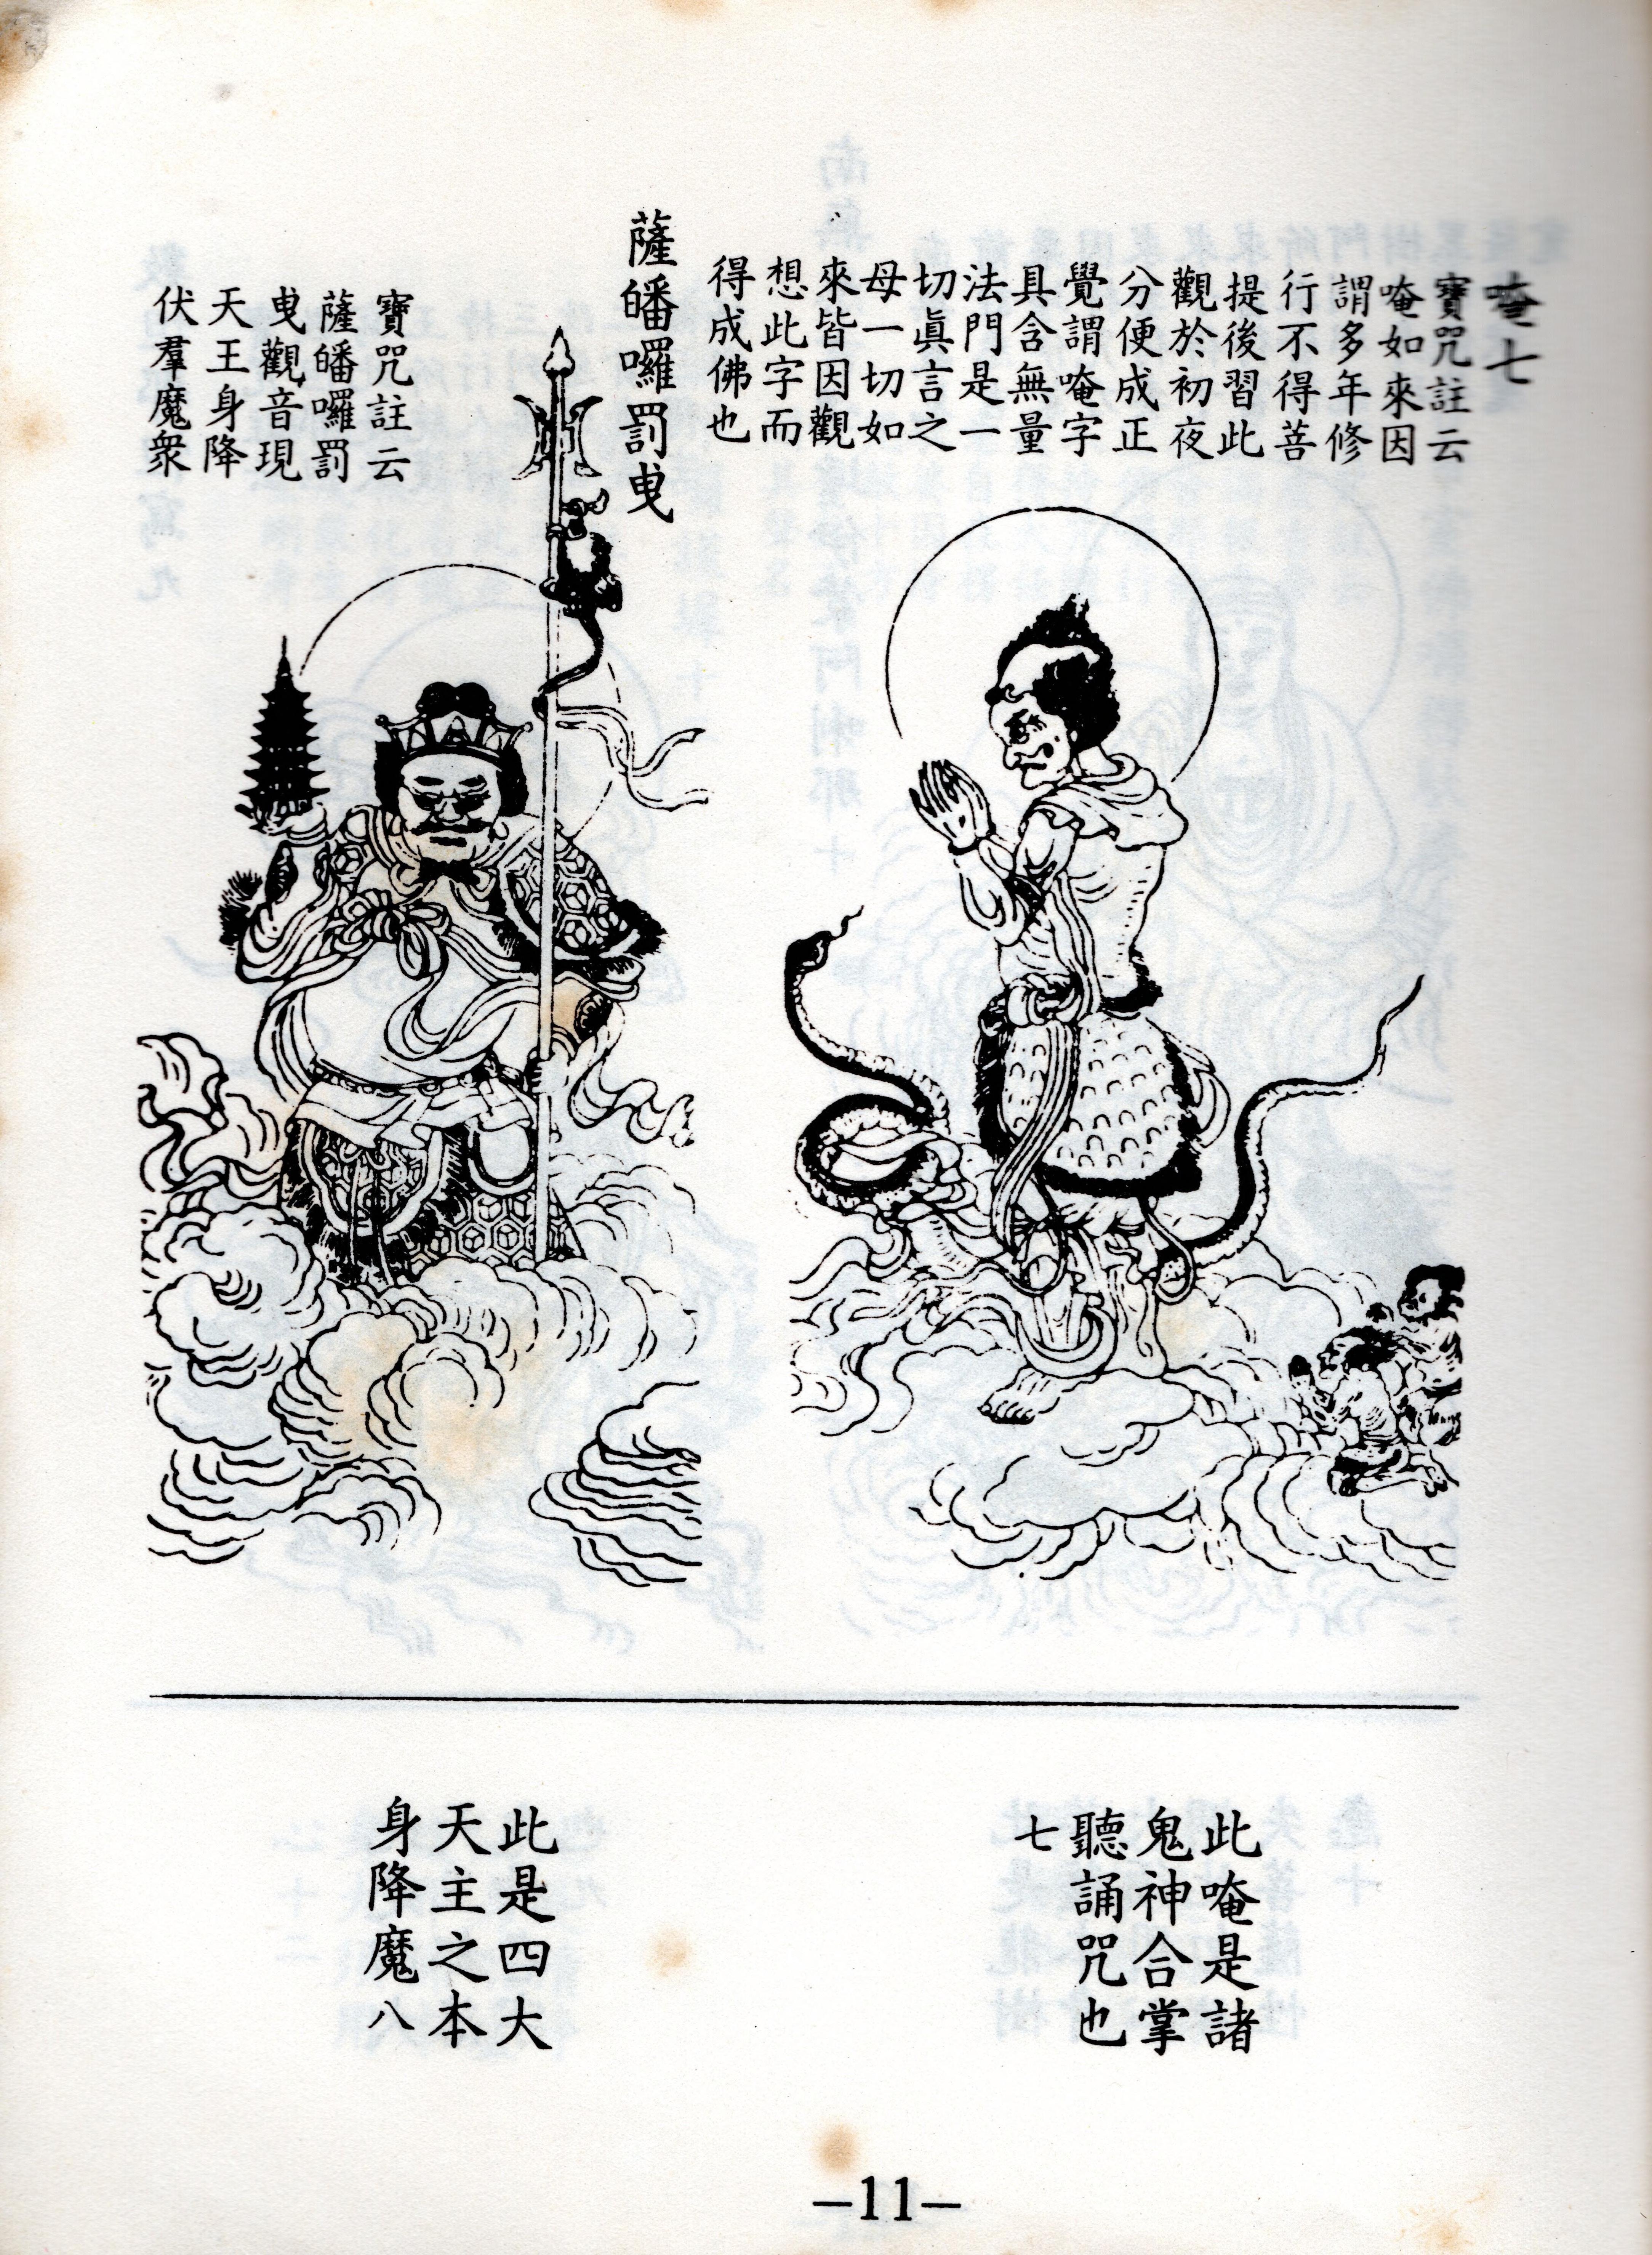 唵七
寶咒註云
唵如來因
謂多年修
行不得菩
提後習此
觀於初夜
分便成正
覺謂唵字
具含無量
法門是一
切眞言之
母一切如
來皆因觀
想此字而
得成佛也
薩皤囉罰曳
寶咒註云
薩皤囉罰
曳觀音現
天王身降
伏羣魔衆
此唵是諸
鬼神合掌
聽誦咒也
七
此是四大
天主之本
身降魔八
—11—